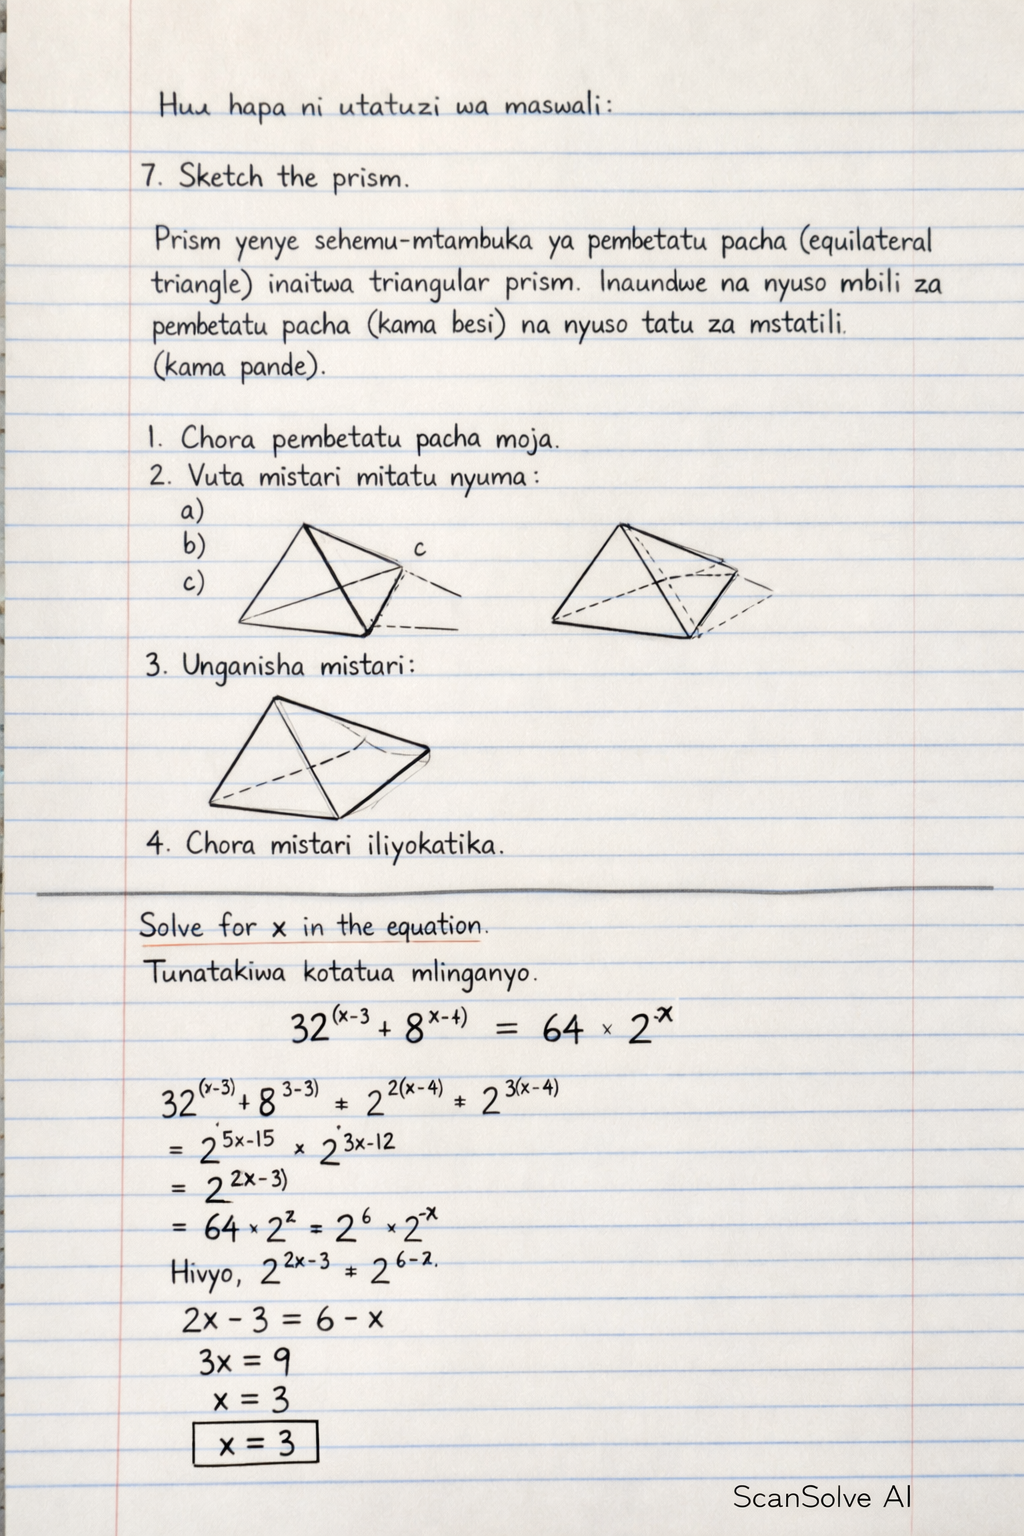 Huu hapa ni utatuzi wa maswali:
7. Sketch the prism.
Prism yenye sehemu-mtambuka ya pembetatu pacha (equilateral
triangle) inaitwa triangular prism. Inaundwe na nyuso mbili za
pembetatu pacha (kama besi) na nyuso tatu za mstatili.
(kama pande).
1. Chora pembetatu pacha moja.
2. Vuta mistari mitatu nyuma:
a)
b)
c)
c
3. Unganisha mistari:
4. Chora mistari iliyokatika.
Solve for x in the equation.
Tunatakiwa kotatua mlinganyo.
32^(x-3 + 8^x-4) = 64 × 2^-x
32^(x-3) + 8^3-3) = 2^2(x-4) = 2^3(x-4)
= 2^5x-15 × 2^3x-12
= 2^2x-3)
= 64 × 2^2 = 2^6 × 2^-x
Hivyo, 2^2x-3 = 2^6-2.
2x - 3 = 6 - x
3x = 9
x = 3
x = 3
ScanSolve AI